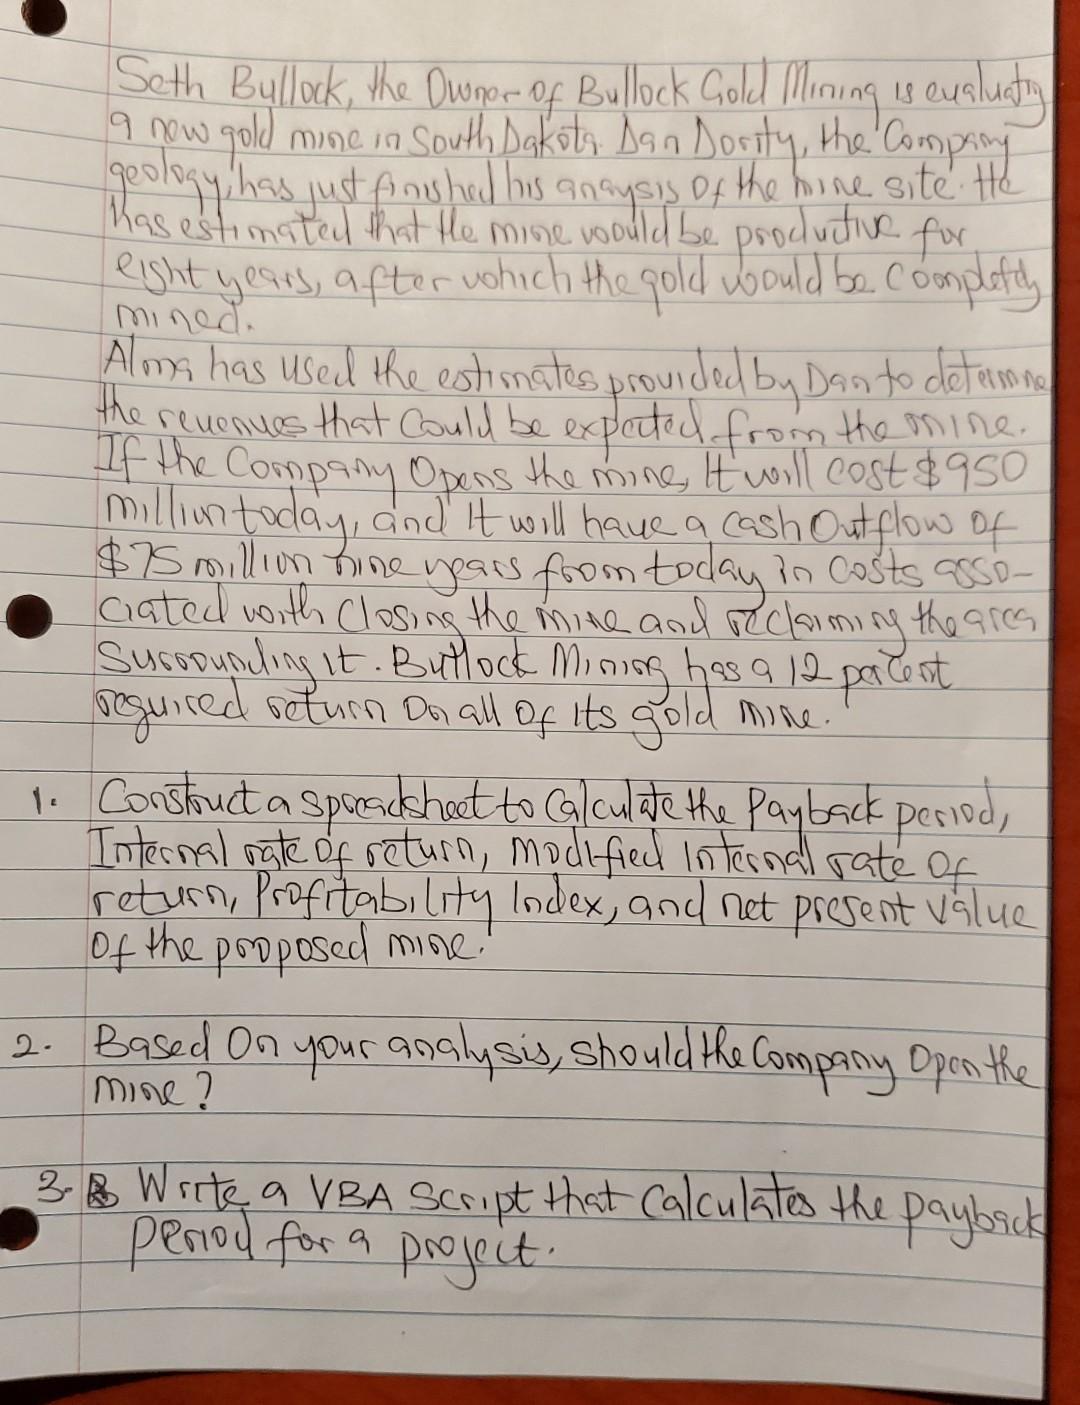 Seth Bullock, the Owner of Bullock Gold Mining is evaluating
a new gold mine in South Dakota. Dan Dority, the Company
geology, has just finished his anaysis of the mine site. He
has estimated that the mine would be productive for
eight years, after which the gold would be completely
mined.
Alma has used the estimates provided by Dan to determine
the revenues that could be expected from the mine.
If the Company Opens the mine, It will cost $950
million today, and It will have a cash Outflow of
$75 million nine years from today in costs asso-
ciated with closing the mine and reclaiming the area
Surrounding it. Bullock Mining has a 12 percent
required return on all of its gold mine.
1. Construct a spreadsheet to Calculate the Payback period,
Internal rate of return, modified internal rate of
return, Profitability Index, and net present value
Of the proposed mine.
2. Based On your analysis, should the Company Open the
mine?
3. Write a VBA Script that Calculates the payback
period for a project.